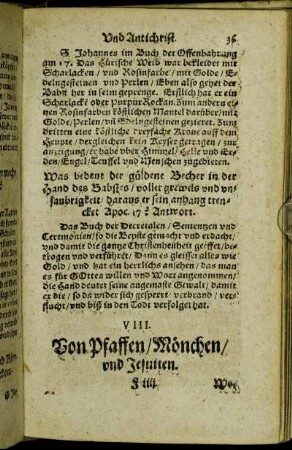 Vnd Antichrist. 36
S. Johannes im Buch der Offenbahrung
am 17. Das Hürische Weib war bekleidet mit
Scharlacken / vnd Rosinfarbe / mit Golde / E-
delngesteinen vnd Perlen / Eben also gehet der
Babst her in seim geprenge. Erstlich hat er ein
Scharlack oder PurpurRock an. Zum andern ei-
nen Rosinfarben köstlichen Mantel darüber / mit
Golde / Perlen / vñ Edelngesteinen gezieret. Zum
dritten eine köstliche dreyfache Krone auff dem
Heupte / dergleichen kein Keyser getragen / zur
anzeigung / er habe vber Himmel / Helle vnd Er-
den / Engel / Teuffel vnd Menschen zugebieten.
Was bedeut der güldene Becher in der
Hand des Babstes / voller grewels vnd vn-
saubrigkeit / daraus er sein anhang tren-
cket Apoc. 17? Antwort.
Das Buch der Decretalen / Sententzen vnd
Ceremonien / so die Beyste gemacht vnd erdacht /
vnd damit die gantze Christenheit geiffet / be-
trogen vnd verführet / Dann es gleisset alles wie
Gold / vnd hat ein herrlichs ansehen / das man
es für GOttes willen vnd Wort angenommen /
die Hand deutet seine angemaste Gewalt / damit
er die / so da wider sich gesperrt verbrand / ver-
flucht / vnd biß in den Todt verfolget hat.
VIII.
Von Pfaffen / Mönchen /
vnd Jesuiten.
F iiij Wo